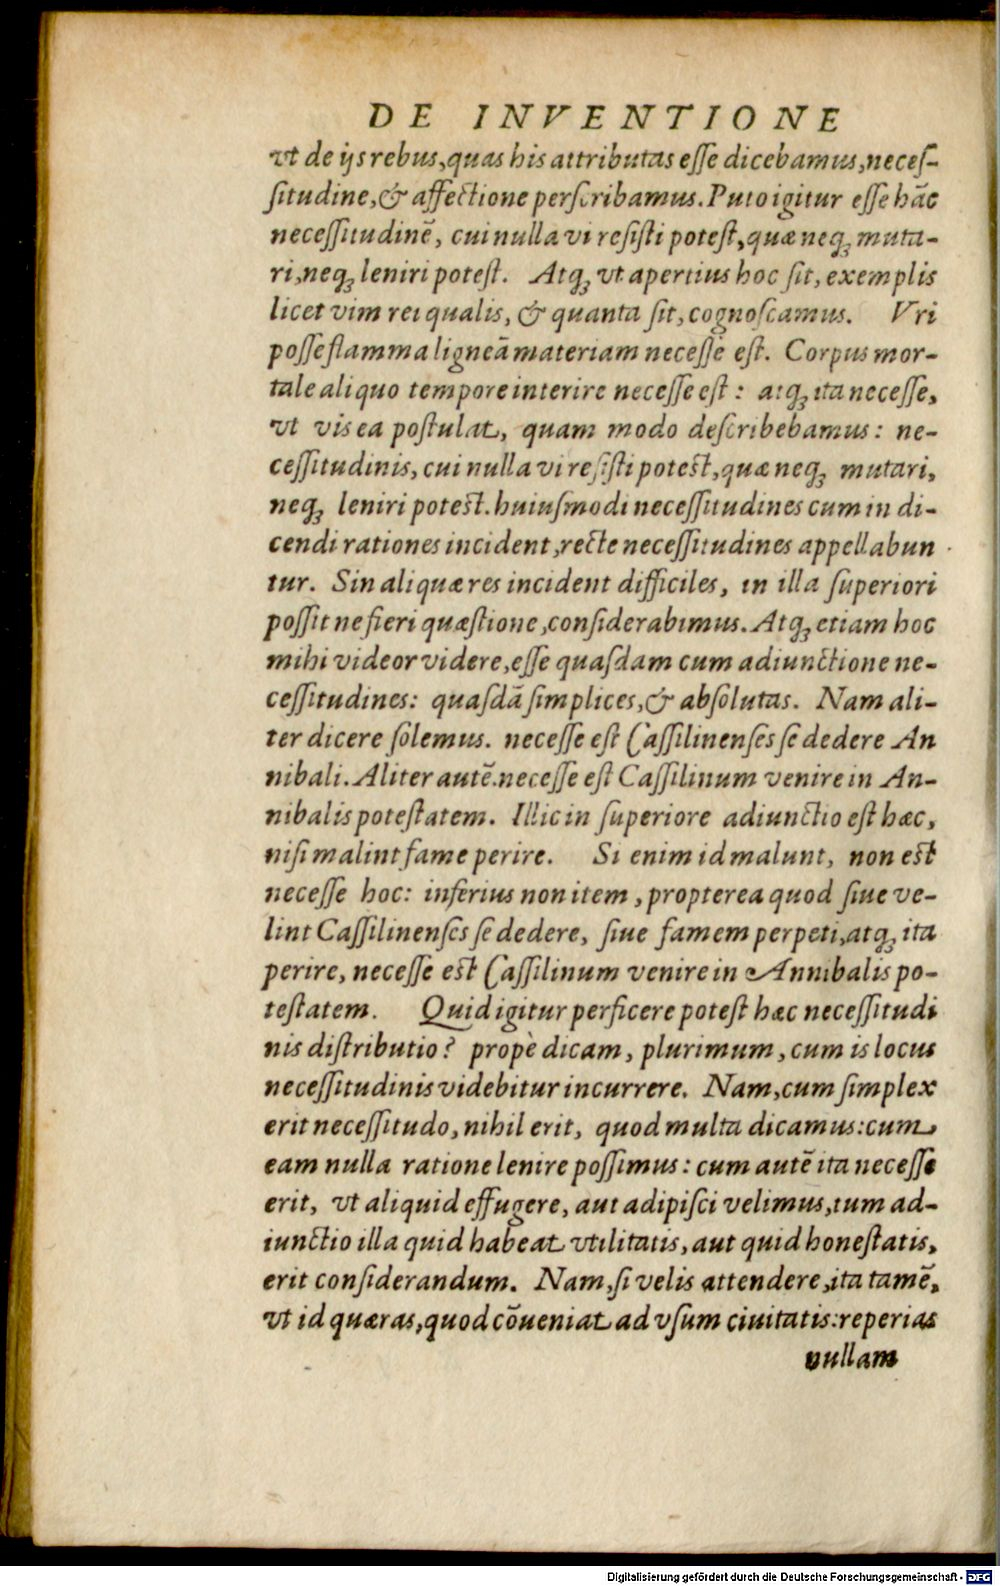 DE INVENTIONE
vt de ijs rebus, quas his attributas esse dicebamus, neces-
situdine, & affectione perscribamus. Puto igitur esse hãc
necessitudinẽ, cui nulla vi resisti potest, quæ neq; muta-
ri, neq; leniri potest. Atq; vt apertius hoc sit, exemplis
licet vim rei qualis, & quanta sit, cognoscamus. Vri
posse flamma ligneã materiam necesse est. Corpus mor-
tale aliquo tempore interire necesse est: atq; ita necesse,
vt vis ea postulat, quam modo describebamus: ne-
cessitudinis, cui nulla vi resisti potest, quæ neq; mutari,
neq; leniri potest. huiusmodi necessitudines cum in di-
cendi rationes incident, recte necessitudines appellabun
tur. Sin aliquæ res incident difficiles, in illa superiori
possit ne fieri quæstione, considerabimus. Atq; etiam hoc
mihi videor videre, esse quasdam cum adiunctione ne-
cessitudines: quasdã simplices, & absolutas. Nam ali-
ter dicere solemus. necesse est Cassilinenses se dedere An
nibali. Aliter autẽ. necesse est Cassilinum venire in An-
nibalis potestatem. Illic in superiore adiunctio est hæc,
nisi malint fame perire. Si enim id malunt, non est
necesse hoc: inferius non item, propterea quod siue ve-
lint Cassilinenses se dedere, siue famem perpeti, atq; ita
perire, necesse est Cassilinum venire in Annibalis po-
testatem. Quid igitur perficere potest hæc necessitudi
nis distributio? propè dicam, plurimum, cum is locus
necessitudinis videbitur incurrere. Nam, cum simplex
erit necessitudo, nihil erit, quod multa dicamus: cum
eam nulla ratione lenire possimus: cum autẽ ita necesse
erit, vt aliquid effugere, aut adipisci velimus, tum ad-
iunctio illa quid habeat vtilitatis, aut quid honestatis,
erit considerandum. Nam, si velis attendere, ita tamẽ,
vt id quæras, quod cõueniat ad vsum ciuitatis: reperias
nullam
Digitalisierung gefördert durch die Deutsche Forschungsgemeinschaft - DFG